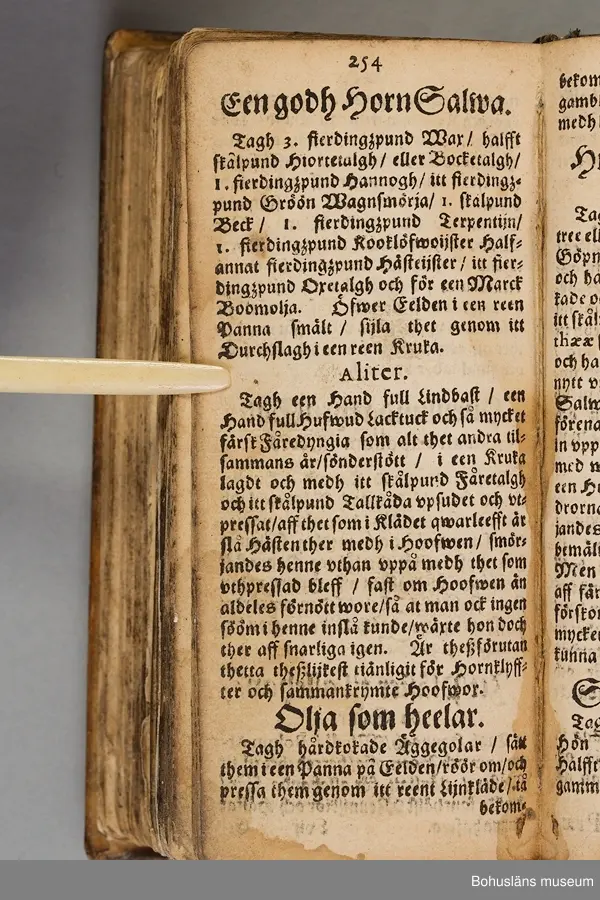 254
Een godh Horn Salwa.
Tagh 3. fierdingzpund Wax/ halfft
skålpund Hiortetalgh/ eller Bocketalgh/
1. fierdingzpund Hannogh/ itt fierdingz-
pund Gröön Wagnsmörja/ 1. skålpund
Beck/ 1. fierdingzpund Terpentijn/
1. fierdingzpund Kooklöfwoijster Half-
annat fierdingzpund Hästeijster/ itt fier-
dingzpund Oxetalgh och för een Marck
Boomolja. Öfwer Eelden i een reen
Panna smält/ sijla thet genom itt
Durchslagh i een reen Kruka.
Aliter.
Tagh een Hand full Lindbast/ een
Hand full Hufwud Lacktuck och så mycket
färsk Fåredyngia som alt thet andra til-
sammans är/ sönderstött/ i een Kruka
lagdt och medh itt skålpund Fåretalgh
och itt skålpund Tallkåda vpsudet och vt-
pressat/ aff thet som i Klädet qwarleefft är
slå Hästen ther medh i Hoofwen/ smör-
jandes henne vthan vppå medh thet som
vthpressad bleff/ fast om Hoofwen än
aldeles förnött wore/ så at man ock ingen
sööm i henne inslå kunde/ wäxte hon doch
ther aff snarliga igen. Är theßförutan
thetta theßlijkest tiänligit för Hornklyff-
ter och sammankrymte Hoofwor.
Olja som heelar.
Tagh hårdkokade Äggegolar/ sätt
them i een Panna på Eelden/ röör om/ och
pressa them genom itt reent Lijnkläde/ tå
bekome
bekom
gambl
medh
Tag
tree ell
Göpn
och ha
kade o
itt skål
thææ
och ha
nytt v
Salw
förena
in vpp
med w
een H
drorna
jandes
bemält
Men
aff fär
förskon
mycke
kunna
S
Tag
Hön
Halfft
gamm
Bohusläns museum